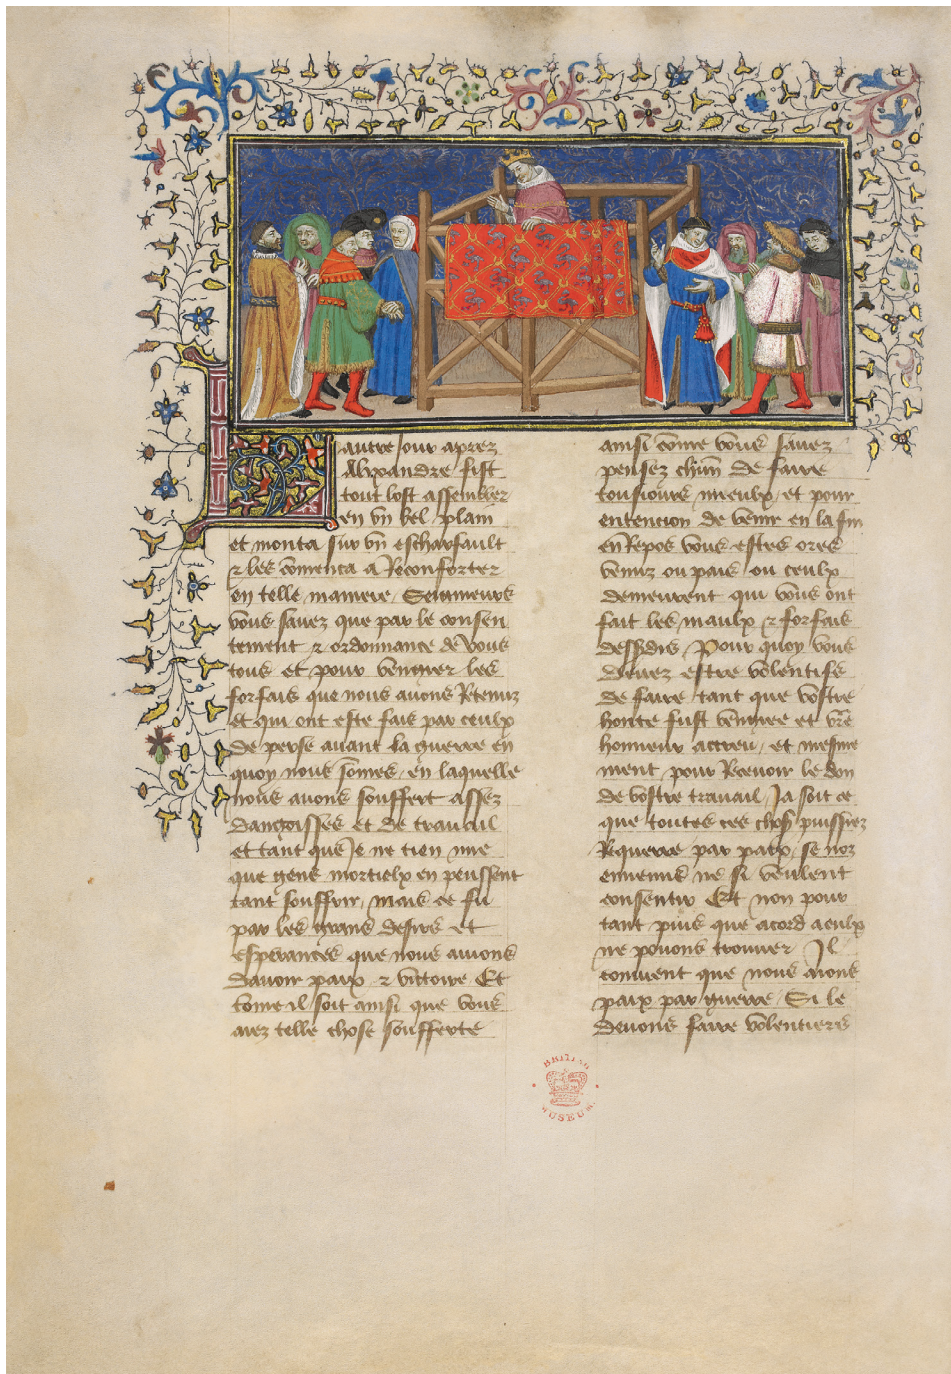 Lautre Jour aprez
Alixandre fist
tout lost assembler
en vn bel plain
et monta sur vn escharfault
⁊ les cōmenca a Reconforter
en telle maniere Seigneurs
vous sauez que par le consen
tement ⁊ ordonnance de vous
tous et pour vengier les
forfais que nous auons Retenuz
et qui ont este fais par ceulx
de perse auant la guerre en
quoy nous sōmes, en laquelle
nous auons souffert assez
dangoisses et de trauail
et tant que Je ne tien mie
que gens mortielx en peussent
tant souffrir, mais ce fu
par les grans desirs et
esperances que nous auions
dauoir paix ⁊ victoire Et
cōme il soit ainsi que vous
aiez telle chose soufferte
ainsi cōme vous sauez
pensez chūn de faire
tousiours mieulx, et pour
entencion de venir en la fin
en Repos vous estes ores
venuz ou pais ou ceulx
demeurent qui vous ont
fait les maulx ⁊ forfais
dessusdis, Pour quoy vous
deuez estre volentifs
de faire tant que vostre
honte fust vengiee et vr̄e
honneur accreu, et mesme
ment, pour Receuoir le don
de vostre trauail, Ja soit ce
que toutes ces chos̄ puissiez
Requerre par paix, se noz
ennemis ne si veulent
consentir Et non pour
tant puis que acord a eulx
ne pouons trouuer Il
conuient que nous aions
paix par guerre, Si le
deuons faire volentiers
BRITISH
MUSEUM